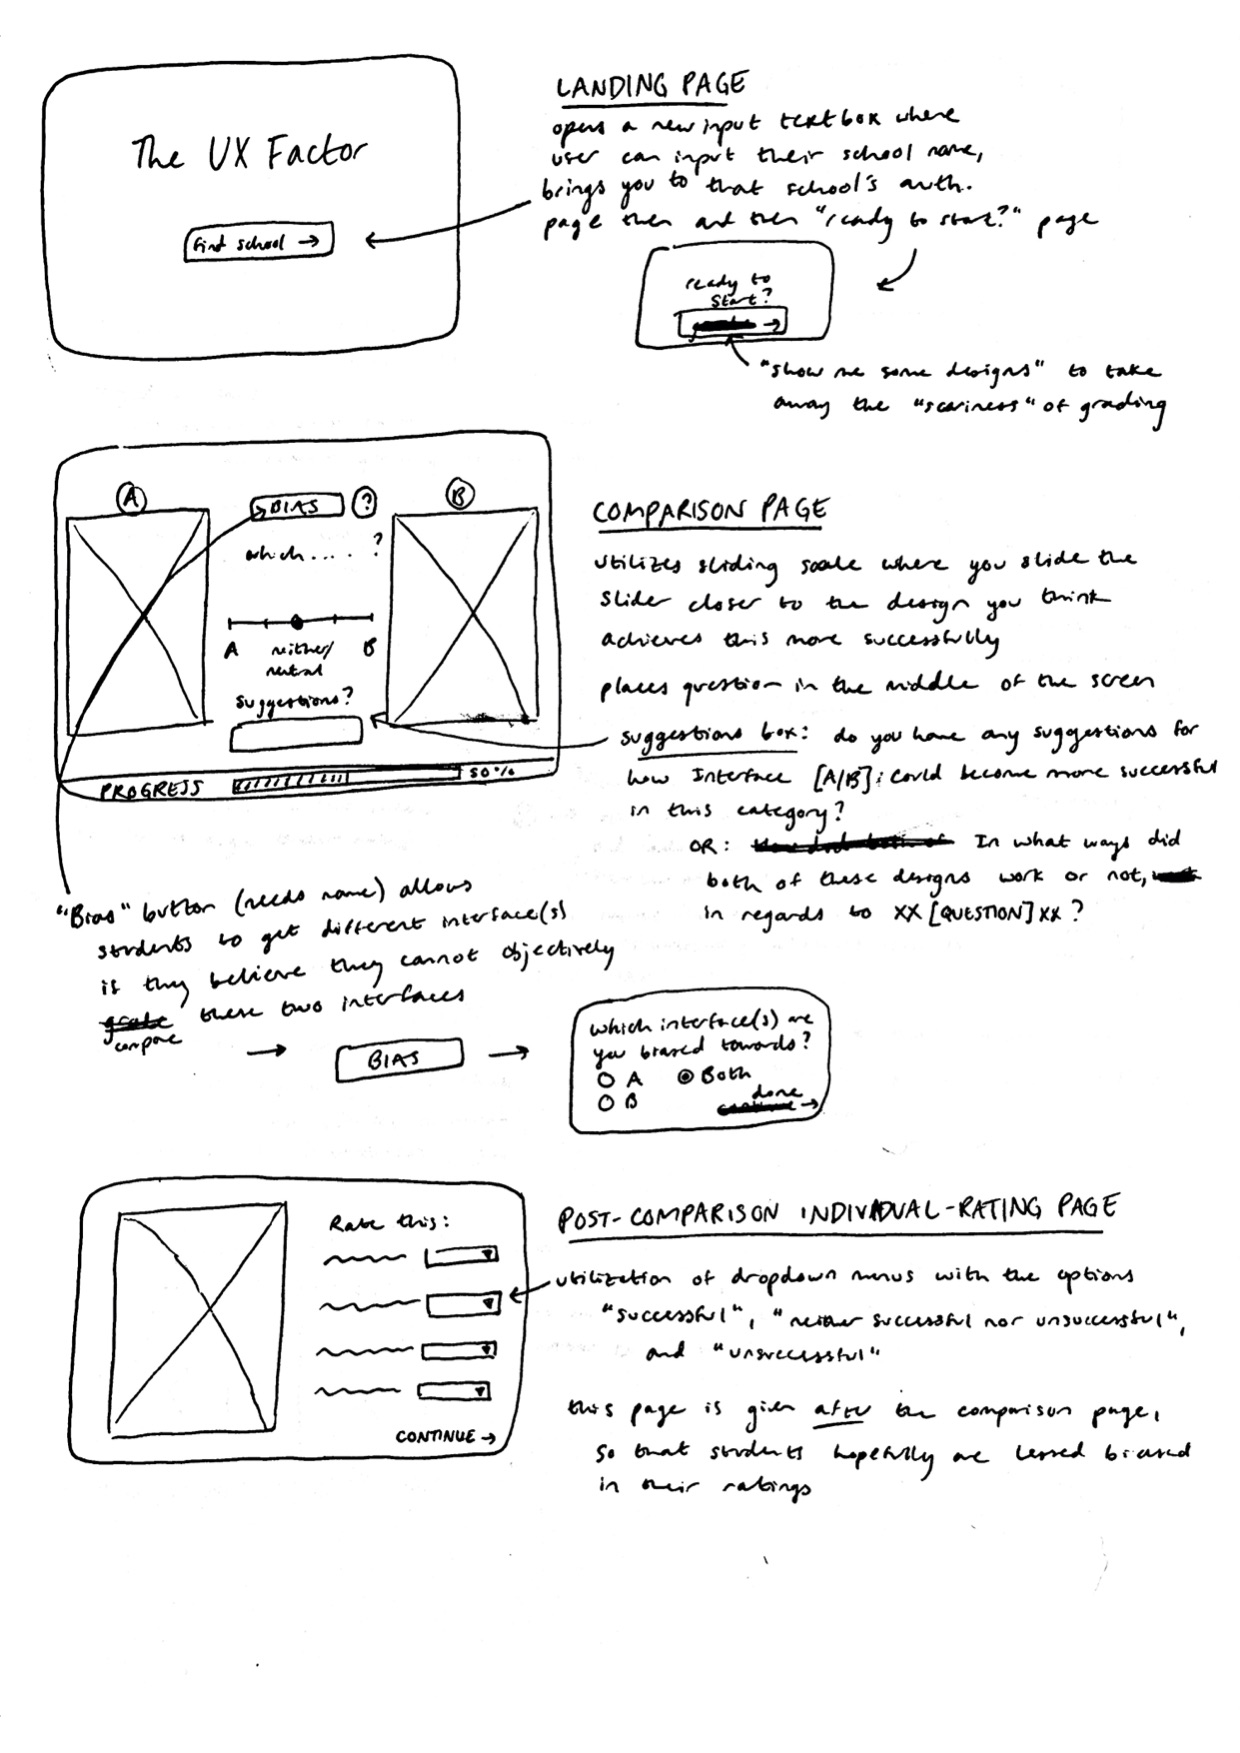 The UX Factor
find school →
LANDING PAGE
opens a new input textbox where
user can input their school name,
brings you to that school's auth.
page then and then "ready to start?" page
ready to
start?
→
"show me some designs" to take
away the "scariness" of grading
A
BIAS
?
B
which .... ?
A
neither/
neutral
B
suggestions?
PROGRESS
50%
COMPARISON PAGE
utilizes sliding scale where you slide the
slider closer to the design you think
achieves this more successfully
places question in the middle of the screen
suggestions box: do you have any suggestions for
how Interface [A/B]; could become more successful
in this category?
OR: In what ways did
both of these designs work or not,
in regards to XX [QUESTION] XX ?
"Bias" button (needs name) allows
students to get different interface(s)
if they believe they cannot objectively
grade these two interfaces
compare
→ BIAS →
which interface(s) are
you biased towards?
A
Both
B
done
continue →
Rate this:
CONTINUE →
POST-COMPARISON INDIVIDUAL-RATING PAGE
utilization of dropdown menus with the options
"successful", "neither successful nor unsuccessful",
and "unsuccessful"
this page is given after the comparison page,
so that students hopefully are lessed biased
in their ratings